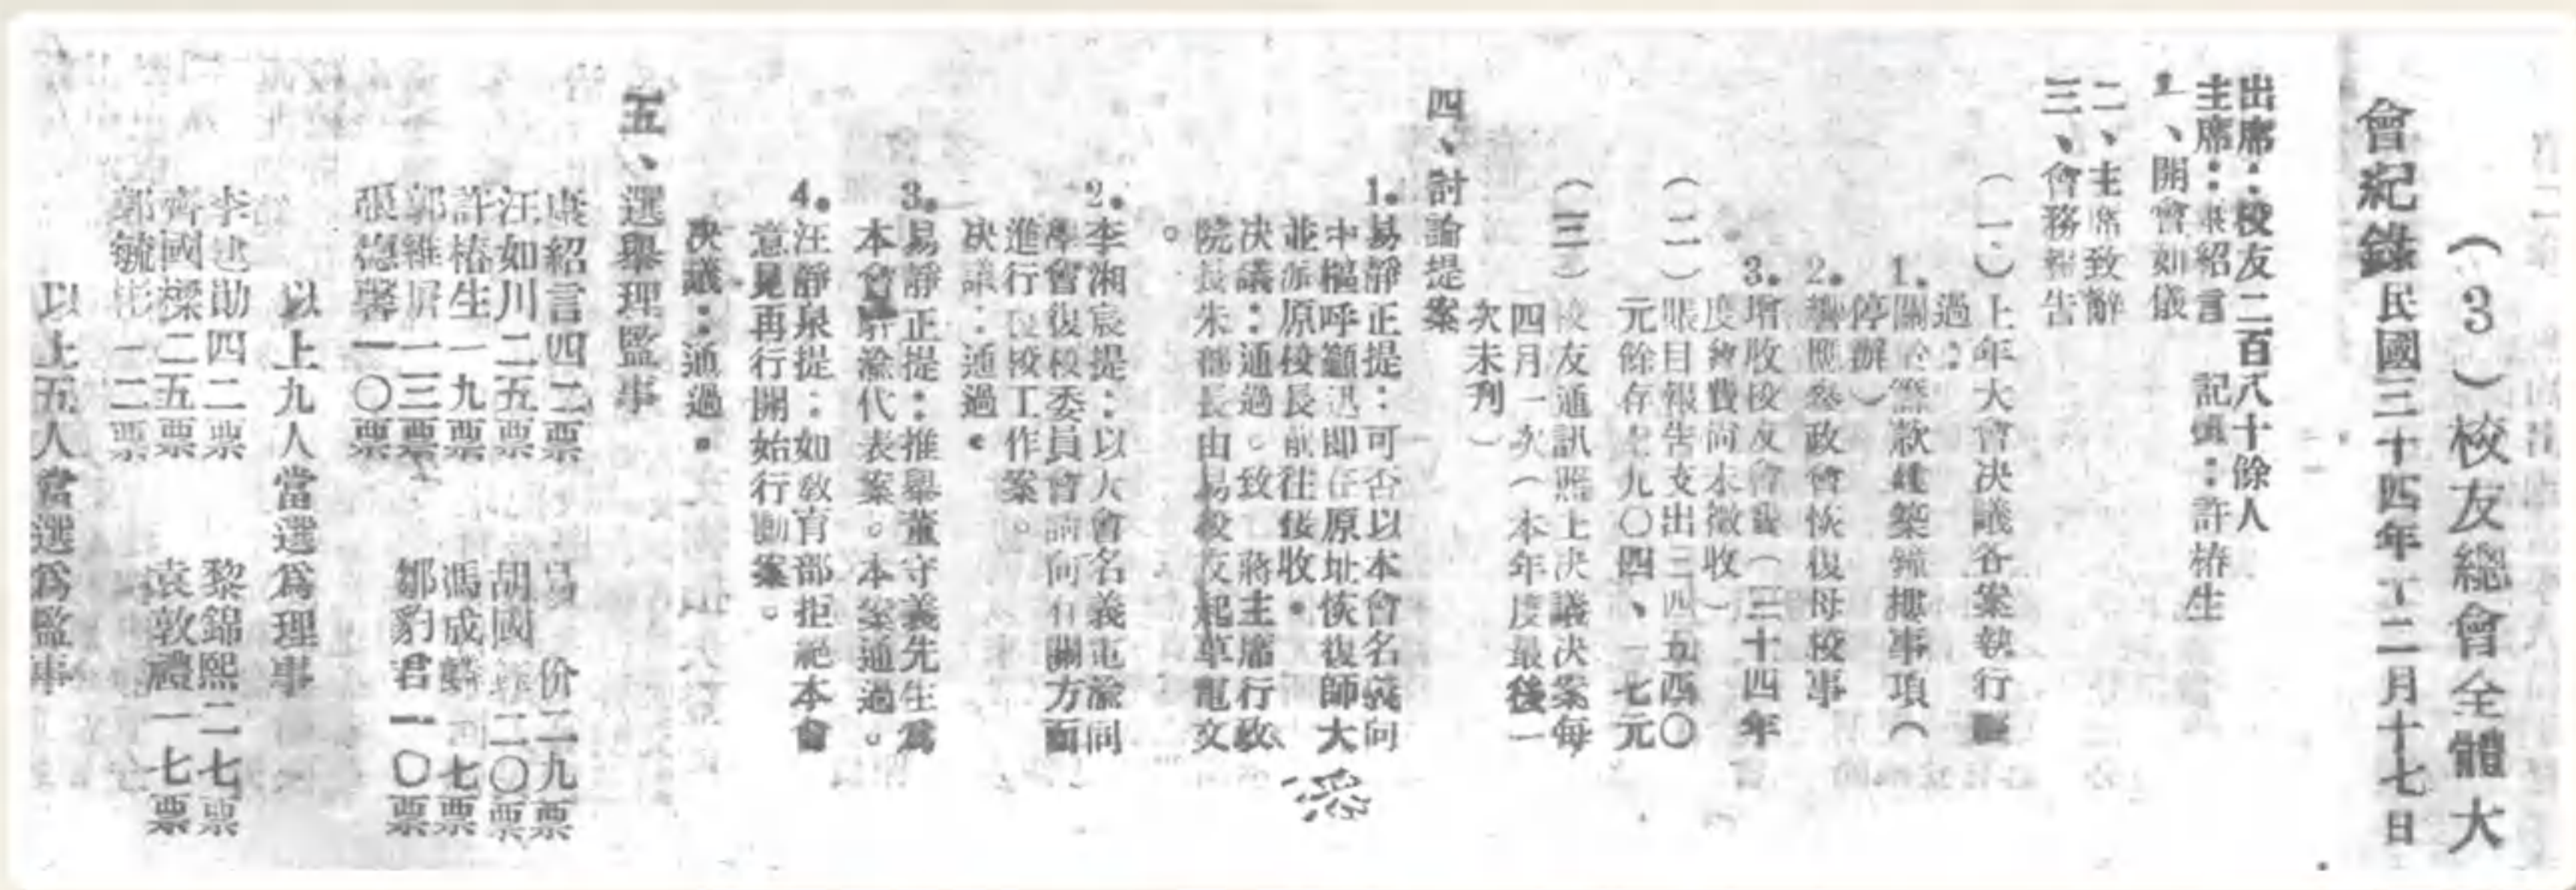 （3）校友總會全體大
會紀錄民國三十四年十二月十七日
出席：校友二百八十餘人
主席：康紹言　記錄：許椿生
一、開會如儀
二、主席致辭
三、會務報告
（一）上年大會決議各案執行
過：
1.關於籌款建築鐘樓事項（
停辦）
2.響應參政會恢復母校事
3.增收校友會費（三十四年
度會費尚未徵收）
（二）賬目報告支出三四五四〇
元餘存 九〇四、一七元
（三）校友通訊照上決議決案每
四月一次（本年度最後一
次未刋）
四、討論提案
1.易靜正提：可否以本會名義向
中樞呼籲迅即在原址恢復師大
並派原校長前往接收。
決議：通過。致 蔣主席行政
院長朱部長由易校友起草電文
。
2.李湘宸提：以大會名義電渝同
學會復校委員會請向有關方面
進行復校工作案。
決議：通過。
3.易靜正提：推舉董守義先生爲
本會駐渝代表案。本案通過。
4.汪靜泉提：如敎育部拒絕本會
意見再行開始行動案。
決議：通過。
五、選舉理監事
康紹言四二票　易　价二九票
汪如川二五票　胡國 二〇票
許椿生一九票　馮成麟 七票
郭維屏一三票　鄒豹君一〇票
張德馨一〇票
以上九人當選爲理事
李建勛四二票　黎錦熙二七票
齊國樑二五票　袁敦禮一七票
郭毓彬一二票
以上五人當選爲監事